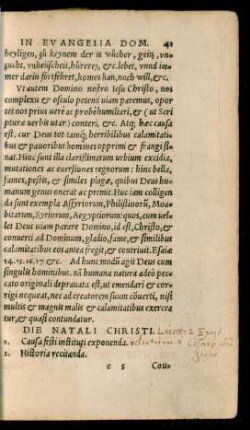 IN EVANGELIA DOM. 41
heyligen, sũ keynem der in wücher, geitz, vn-
zucht, vnkeüscheit, hürerey, &c. lebet, vnnd im-
mer darin fortfehret, komet kan, noch will, &c.
Vt autem Domino nostro Iesu Christo, nos
complexu & osculo petenti viam paremus, opor-
tet nos prius uerè ac probè humiliari, & (ut Scri
pturæ uerbis utar) conteri, &c. Atq; hæc causa
est, cur Deus tot tamq́; horribilibus calamitati-
bus & pauoribus homines opprimi & frangi si-
nat. Hinc sunt illa clarissimarum urbium excidia,
mutationes ac euersiones regnorum: hinc bella,
fames, pestis, & similes plagæ, quibus Deus hu
manum genus onerat ac premit. Huc iam colligen
da sunt exempla Assyriorum, Philistinorũ, Moa-
bitarum, Syriorum, Aegyptiorum: quos, cum uel-
let Deus uiam parare Domino, id est, Christo, &
conuerti ad Dominum, gladio, fame, & similibus
calamitatibus eos antea fregit, & contriuit. Esaiæ
14. 15. 16. 17. &c. Ad hunc modũ agit Deus cum
singulis hominibus. nã humana natura adeò pec-
cato originali deprauata est, ut emendari & cor-
rigi nequeat, nec ad creatorem suum cõuerti, nisi
multis & magnis malis & calamitatibus exercea
tur, & quasi contundatur.
DIE NATALI CHRISTI.
1. Causa festi instituti exponenda.
2. Historia recitanda.
c 5 Con-